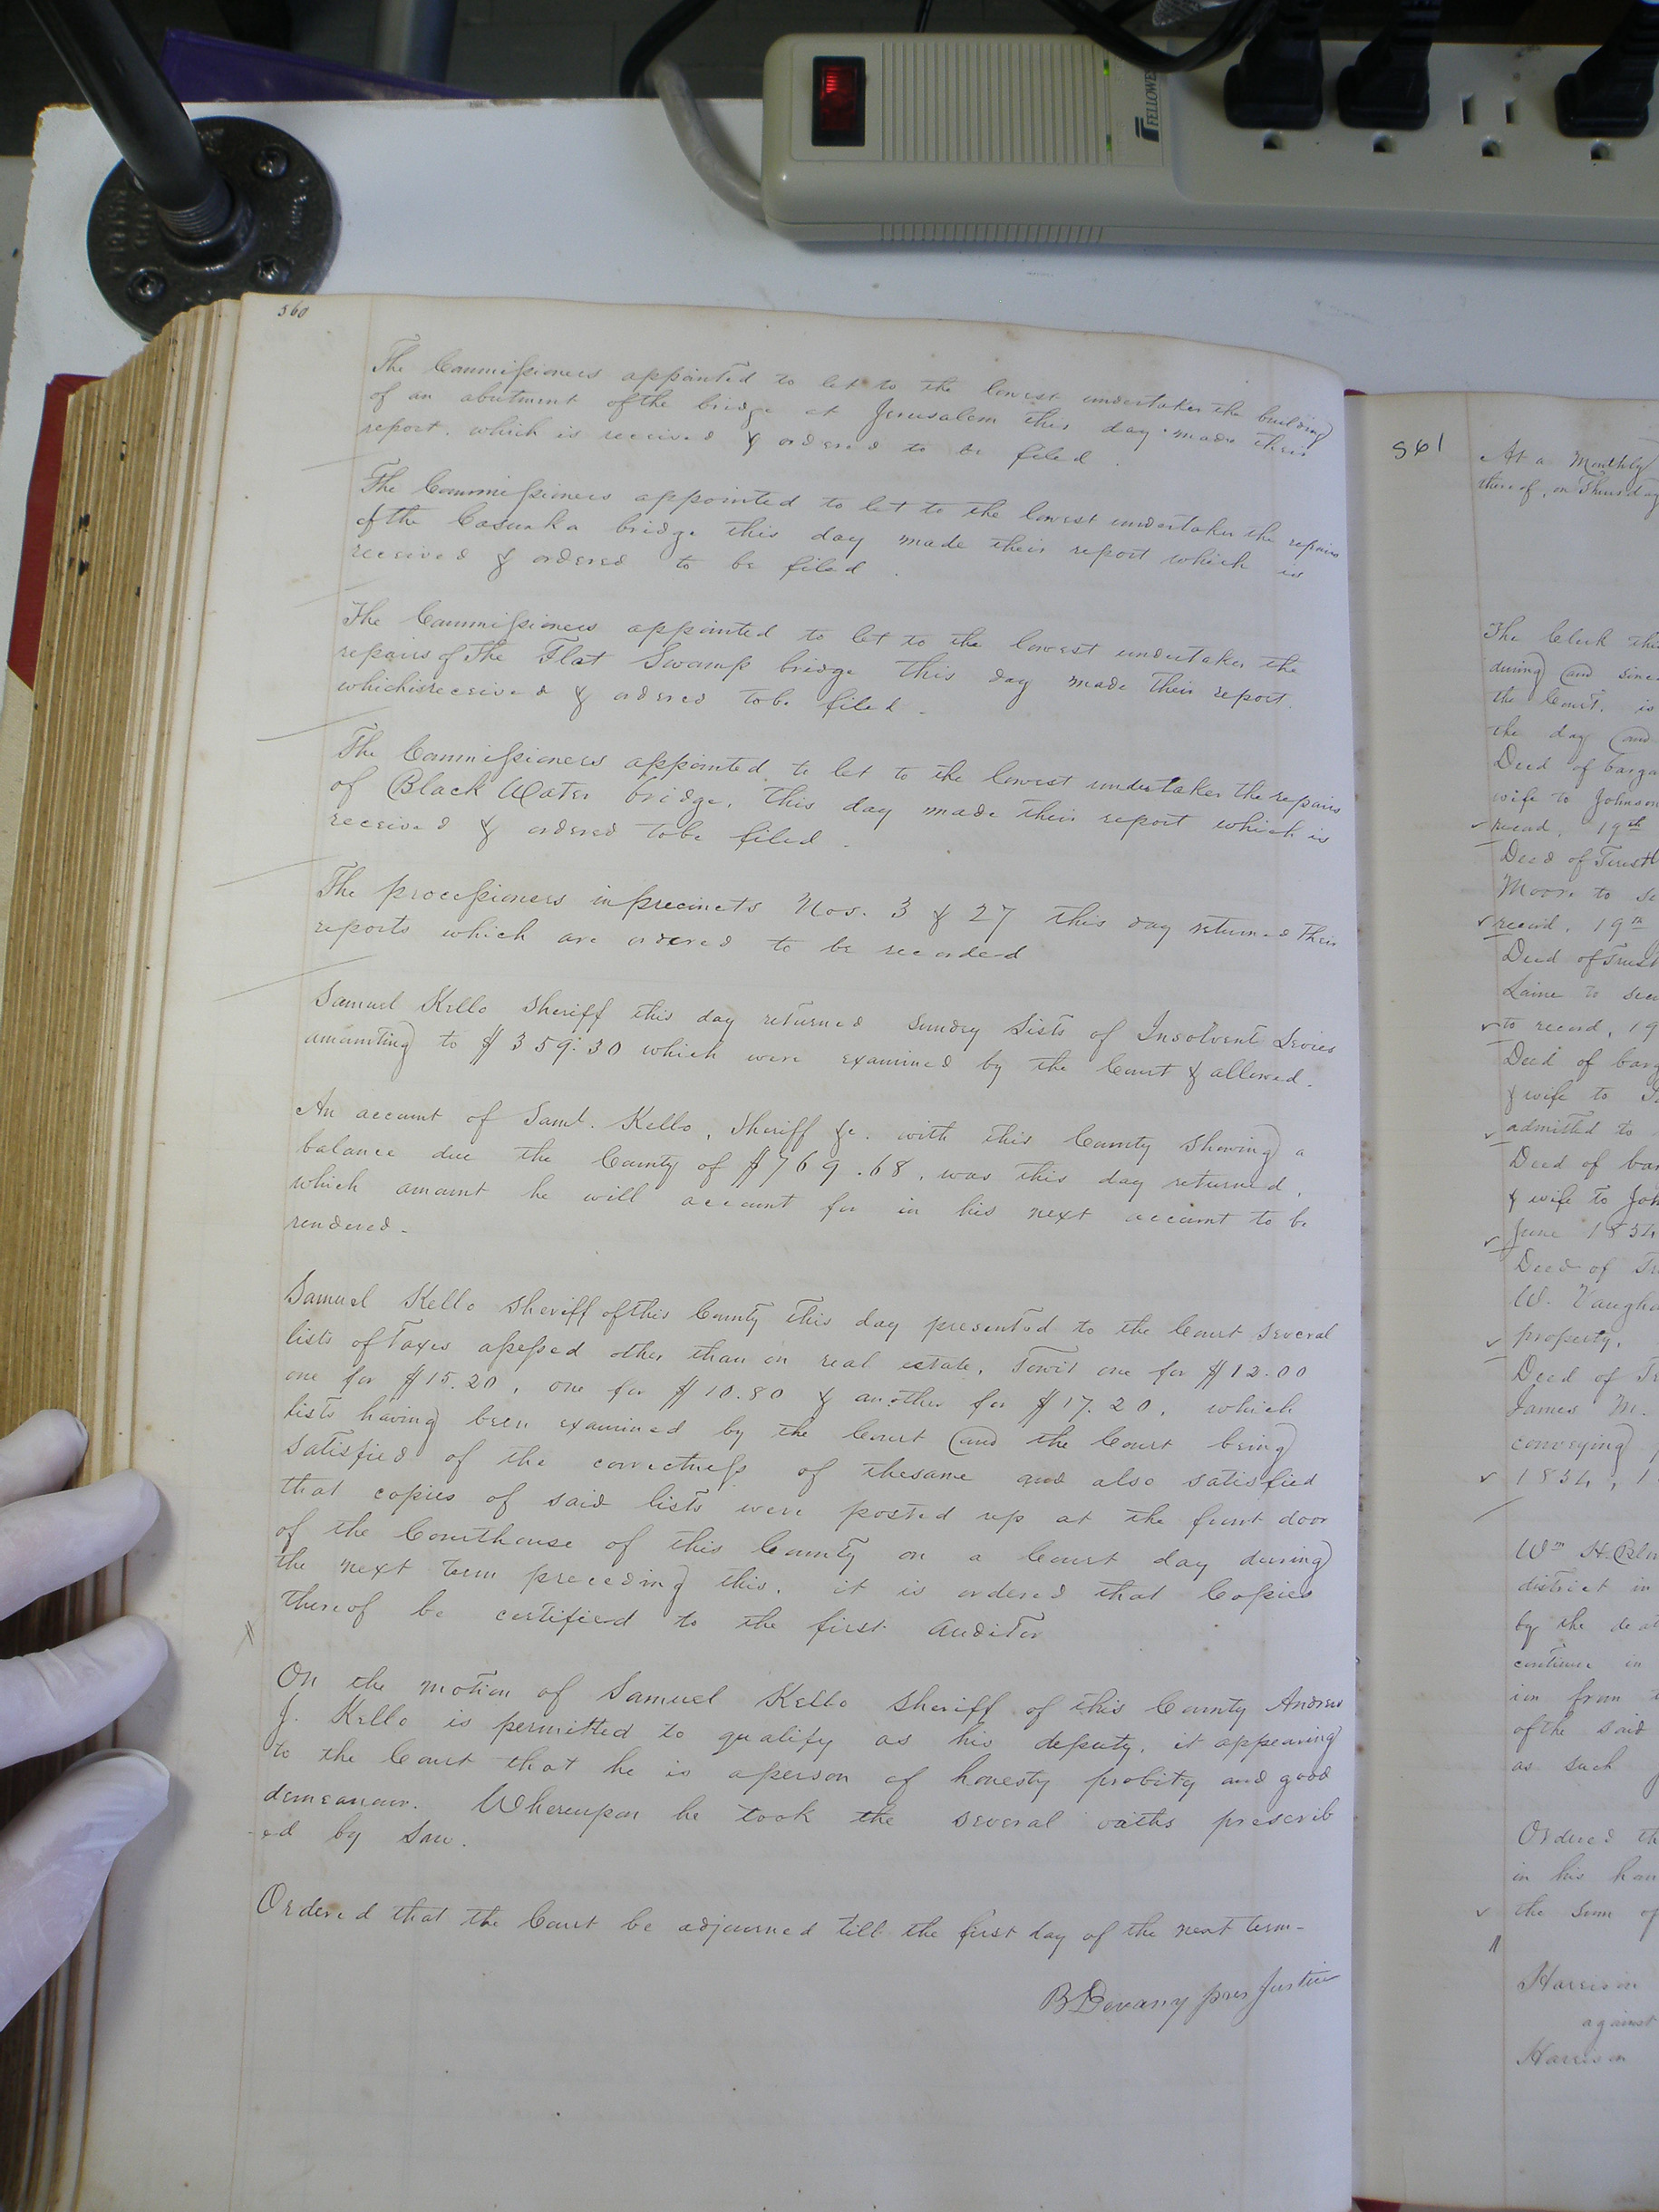 FELLOWE
560
The Commissioners appointed to let to the lowest undertaker the building
of an abutment of the bridge at Jerusalem this day made their
report. which is received & ordered to be filed.
The Commissioners appointed to let to the lowest undertaker the repairs
of the bridge this day made their report which is
received & ordered to be filed.
The Commissioners appointed to let to the lowest undertaker the
repairs of The Flat Swamp bridge this day made their report.
which is received & ordered to be filed.
The Commissioners appointed to let to the lowest undertaker the repairs
of Black Water bridge, this day made their report which is
received & ordered to be filed.
The processioners in precincts Nos. 3 & 27 this day returned their
reports which are ordered to be recorded
Samuel Kello Sheriff this day returned Sundry Lists of Insolvent Levies
amounting to $359.30 which were examined by the Court & allowed.
An account of Saml. Kello, Sheriff &c. with this County Showing a
balance due the County of $769.68, was this day returned,
which amount he will account for in his next account to be
rendered-
Samuel Kello Sheriff of this County This day presented to the Court Several
lists of Taxes assessed other than on real estate, Towit one for $12.00
one for $15.20, one for $10.80 & another for $17.20, which
lists having been examined by the Court and the Court being
satisfied of the correctness of the same and also satisfied
that copies of said lists were posted up at the front door
of the Courthouse of this County on a Court day during
the next Term preceding this, it is ordered that Copies
thereof be certified to the first Auditor
On the motion of Samuel Kello Sheriff of this County Andrew
J. Kello is permitted to qualify as his deputy, it appearing
to the Court that he is a person of honesty probity and good
demeanour. Whereupon he took the several oaths prescrib
-ed by Law.
Ordered that the Court be adjourned till the first day of the next Term-
B Devany pres Justice
561
At a Monthly
thereof, on Thursday
The Clerk this
during and since
the Court, is
the day and
Deed of barga
wife to Johnson
record, 19th
Deed of Trust
Moore to se
record, 19th
Deed of Trust
Laine to sec
to record, 19
Deed of barg
& wife to
admitted to
Deed of bar
& wife to Joh
June 1854
Deed of Tr
W. Vaugha
property,
Deed of Tr
James M.
conveying
1854, 1
Wm H. Blu
district in
by the deat
continue in
ion from
of the said
as such
Ordered th
in his han
the sum of
Harrison
against
Harrison